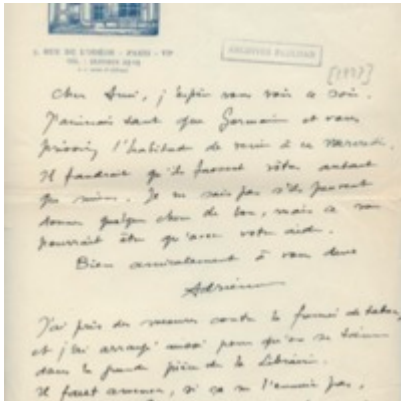 RUE DE L'ODÉON - PARIS - VIe
ARCHIVES PAULHAN
[1937]
Cher Ami, j'espère vous voir ce soir.
J'aimerais tant que Germaine et vous
l'habitude de venir à ce mercredi.
Il faudrait qu'ils fussent vôtres autant
que miens. Je ne sais pas s'ils peuvent
donner quelque chose de bon, mais ce
pourrait être qu'avec votre aide.
Bien amicalement à vous deux
Adrienne
J'ai pris des mesures contre la fumée de tabac,
et j'ai arrangé aussi pour qu'on se tienne
dans la grande pièce de la Librairie.
Il faut amener, si ça ne l'ennuie pas,